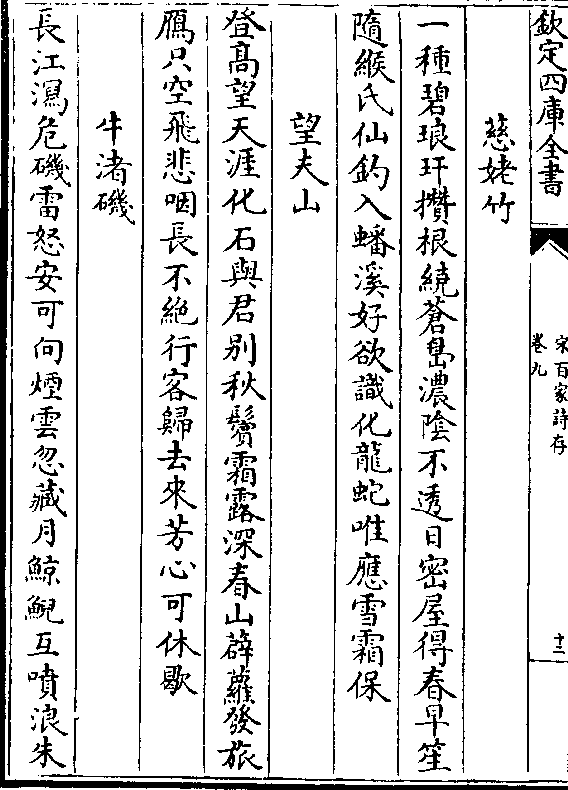 欽定四庫全書
宋百家詩存
卷九
十二
慈姥竹
一種碧琅玕攢根繞蒼島濃陰不透日密屋得春早笙
隨緱氏仙釣入蟠溪好欲識化龍蛇唯應雪霜保
望夫山
登髙望天涯化石與君别秋鬢霜露深春山薜蘿發旅
鴈只空飛悲咽長不絶行客歸去來芳心可休歇
牛渚磯
長江瀉危磯雷怒安可向煙雲忽藏月鯨鯢互噴浪朱